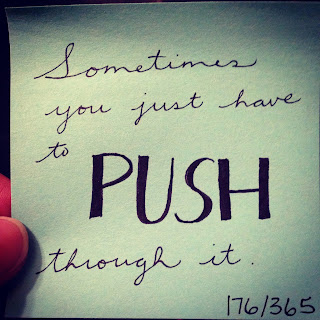 Sometimes
you just have
to PUSH
through it.
176/365